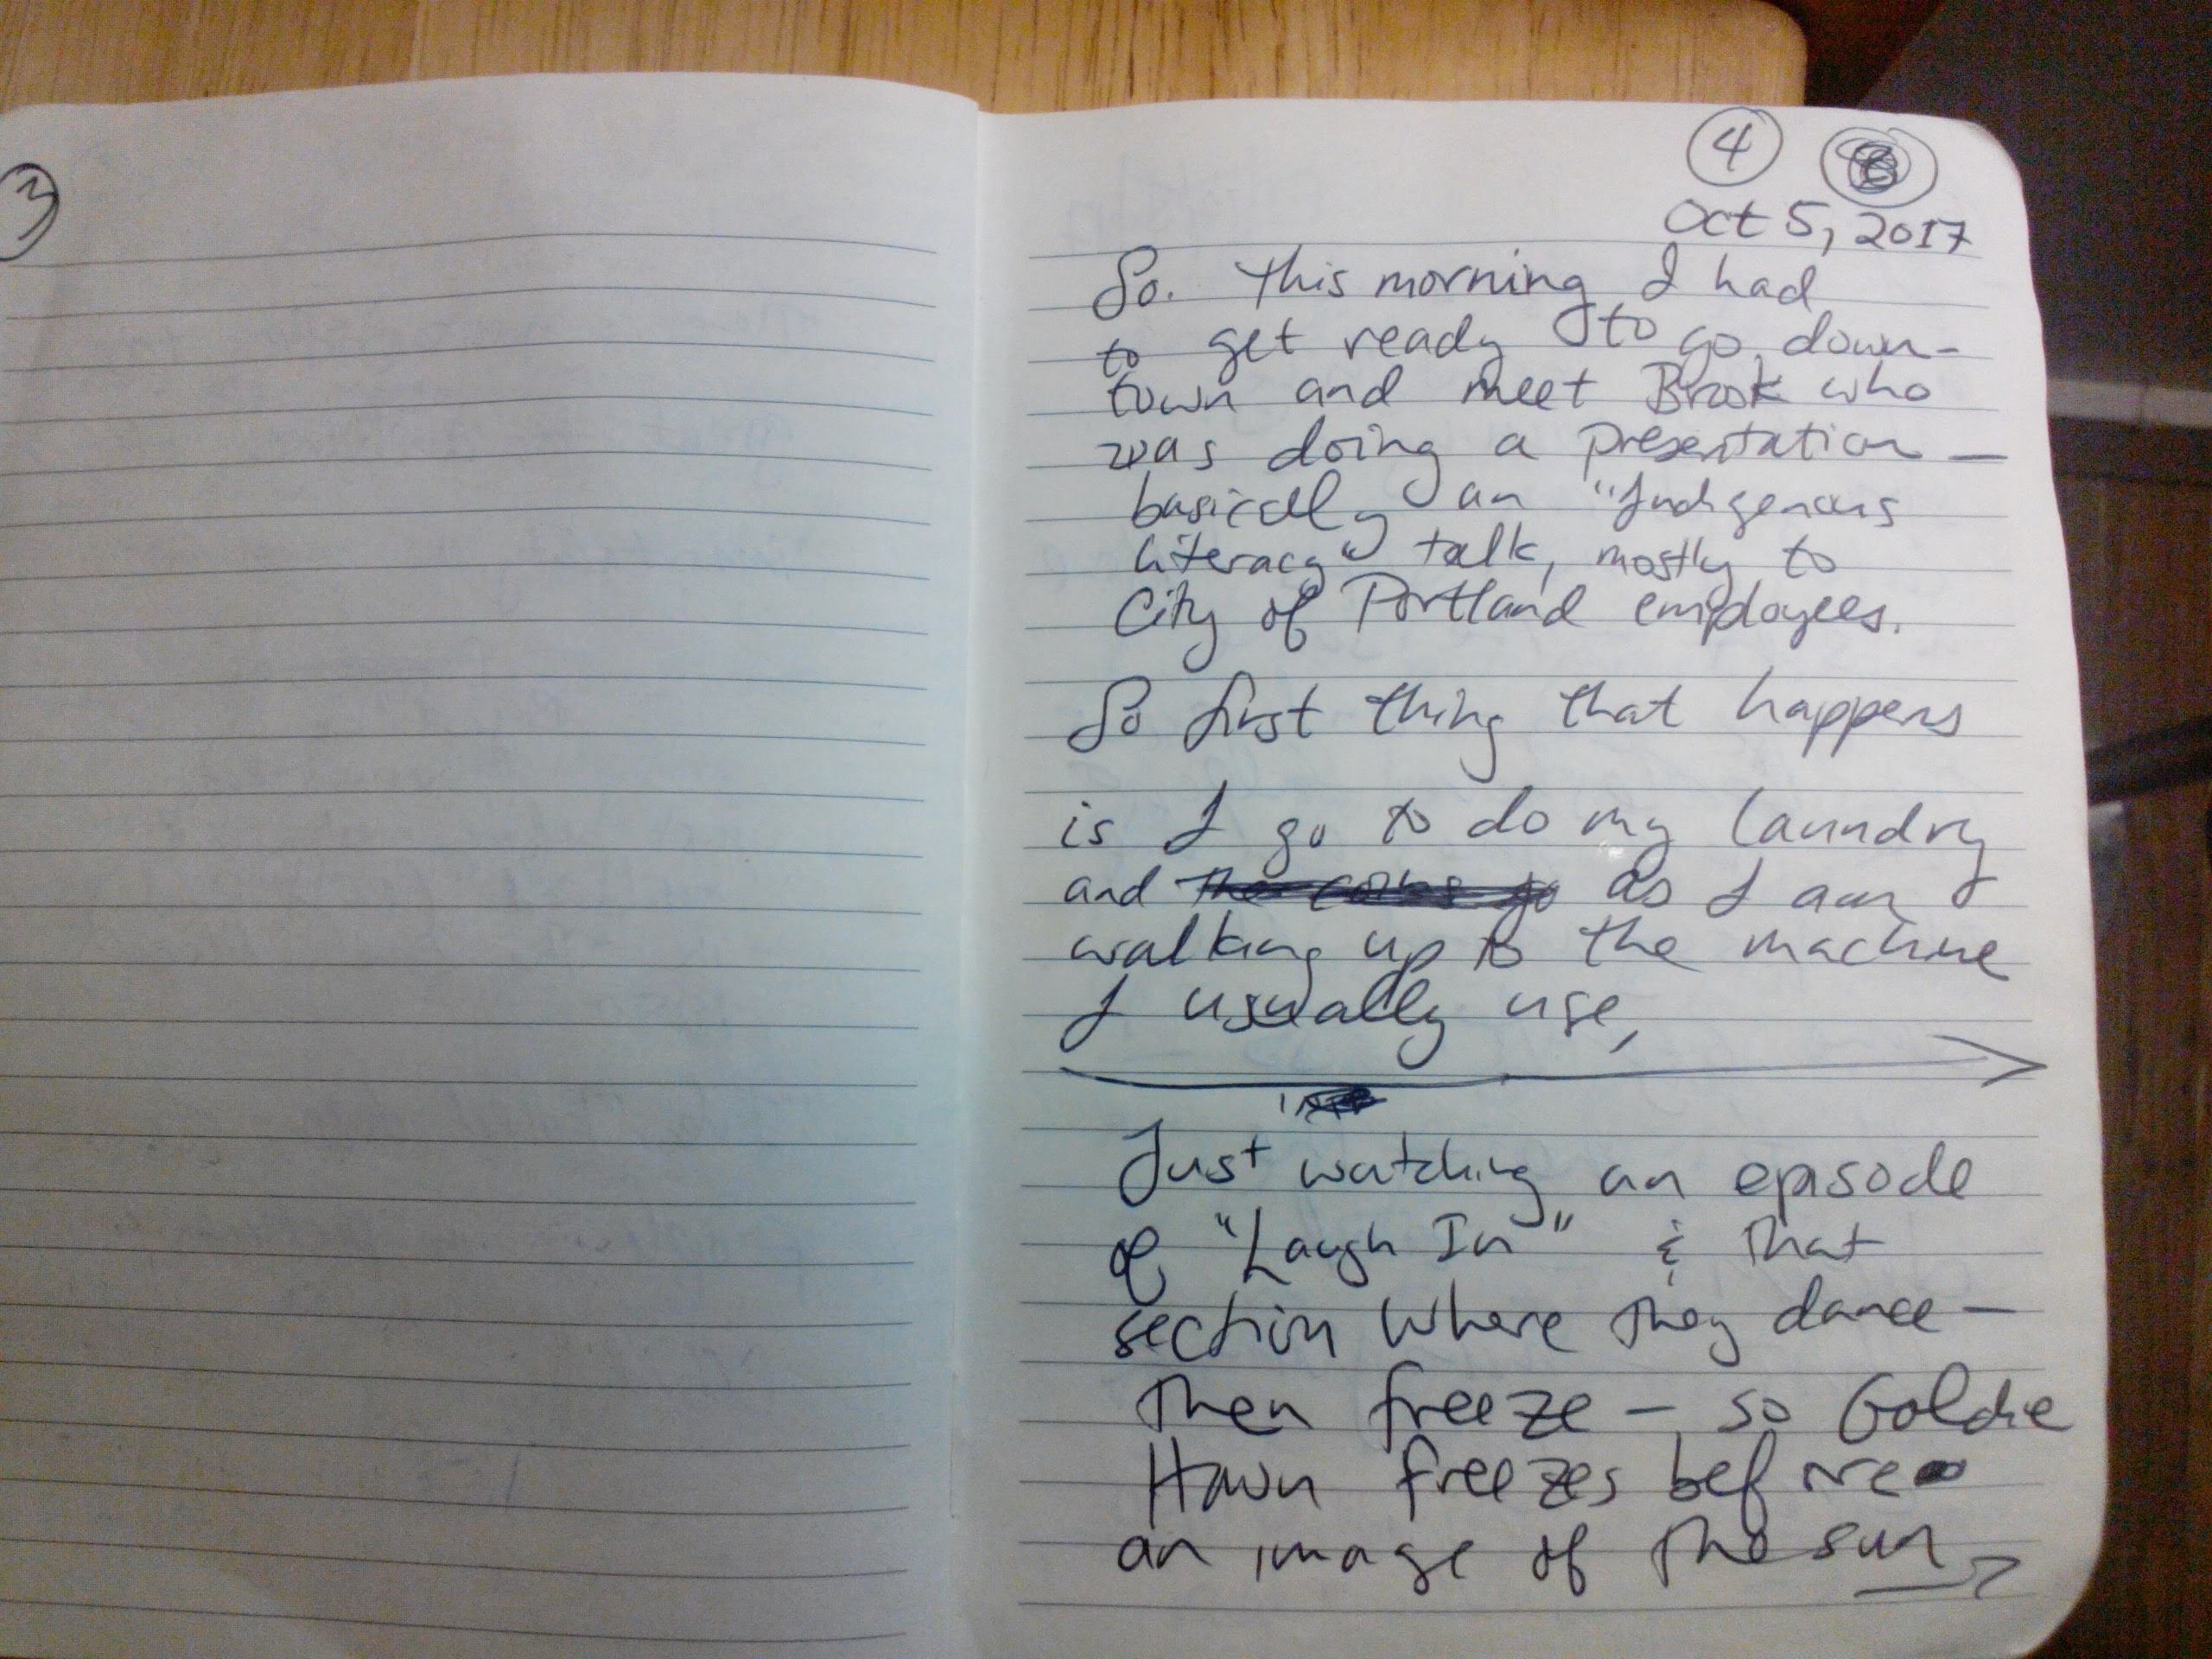 3
4
Oct 5, 2017
So. This morning I had
to get ready to go down-
town and meet Brook who
was doing a presentation —
basically an "Indigenous
literacy" talk, mostly to
City of Portland employees.
So first thing that happens
is I go to do my laundry
and as I am
walking up to the machine
I usually use,
Just watching an episode
of "Laugh In" & that
section where they dance —
then freeze — so Goldie
Hawn freezes before
an image of the sun